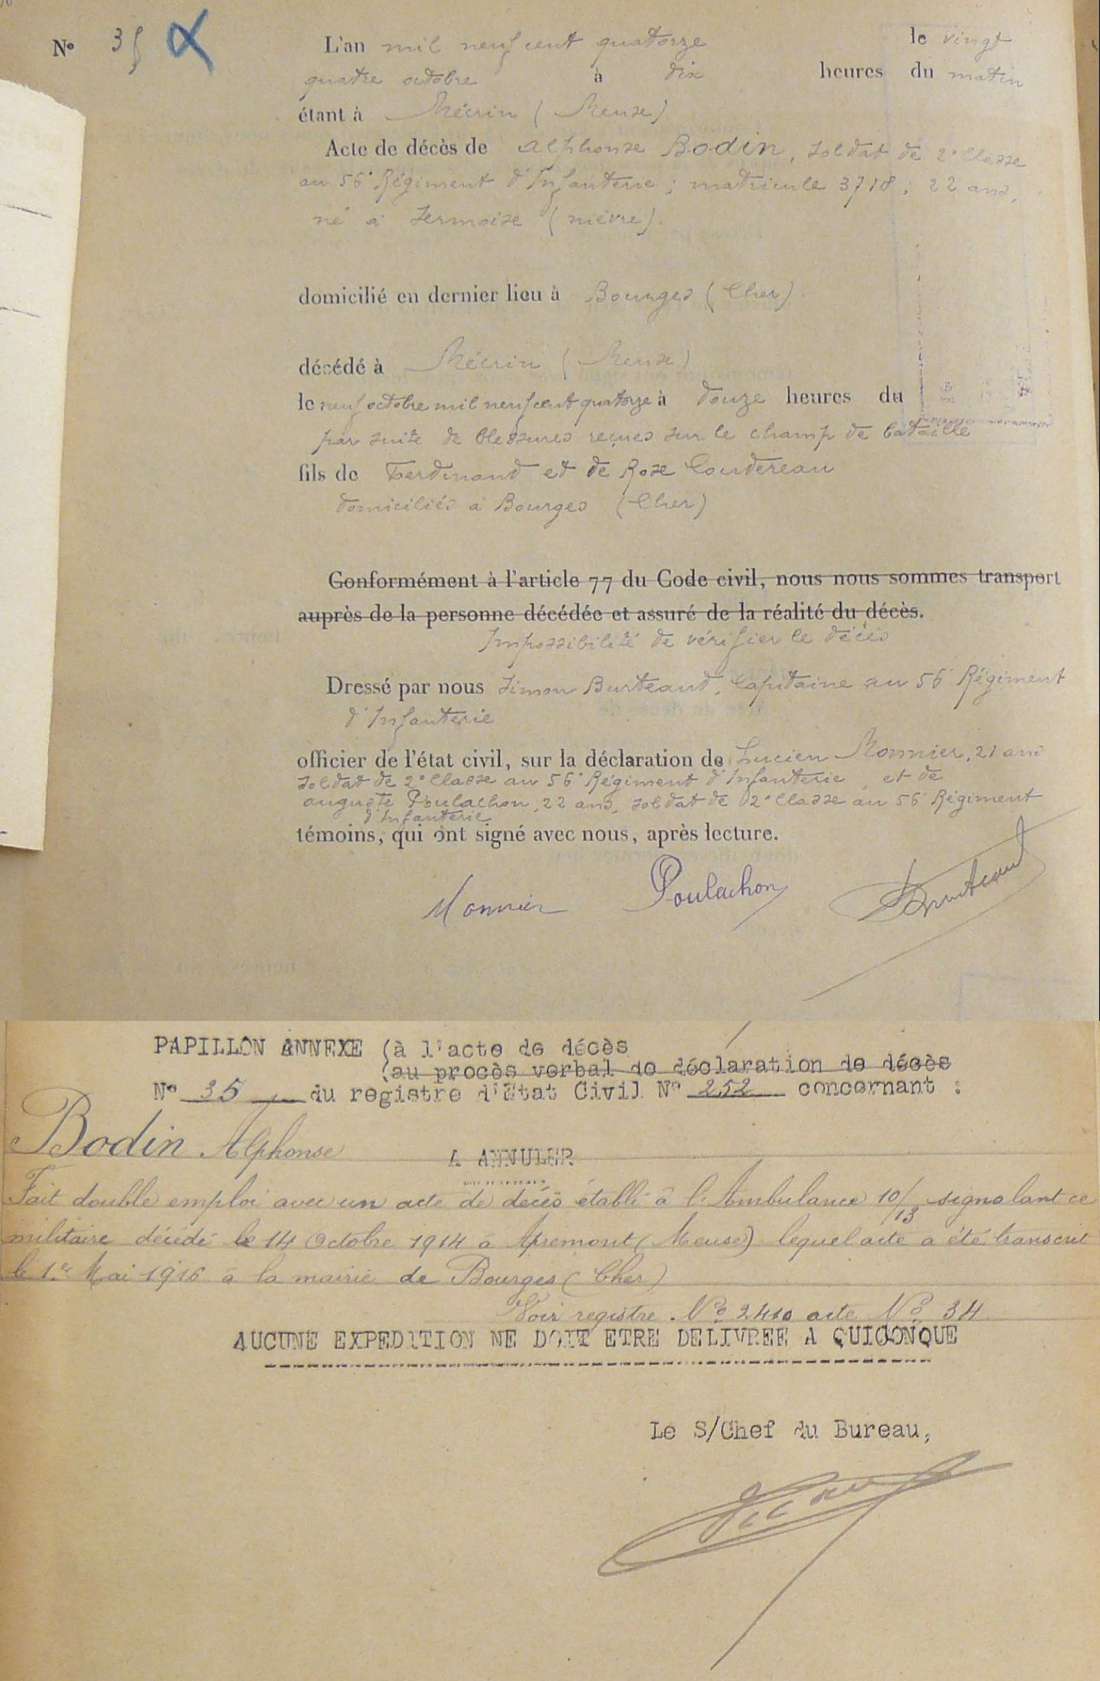 N° 35
L'an mil neuf cent quatorze le vingt
quatre octobre à dix heures du matin
étant à Mécrin (Meuse)
Acte de décès de Alphonse Bodin, soldat de 2e Classe
au 56e Régiment d'Infanterie ; matricule 3718 ; 22 ans,
né à Sermoise (nièvre).
domicilié en dernier lieu à Bourges (Cher).
décédé à Mécrin (Meuse)
le neuf octobre mil neuf cent quatorze à douze heures du
par suite de blessures reçues sur le champ de bataille
fils de Ferdinand et de Rose Coudereau
domiciliés à Bourges (Cher)
Conformément à l'article 77 du Code civil, nous nous sommes transport
auprès de la personne décédée et assuré de la réalité du décès.
Impossibilité de vérifier le décès
Dressé par nous Simon Burteaud, Capitaine au 56e Régiment
d'Infanterie
officier de l'état civil, sur la déclaration de Lucien Monnier, 21 ans
soldat de 2e Classe au 56e Régiment d'Infanterie et de
auguste Poulachon, 22 ans, soldat de 2e Classe au 56e Régiment
d'Infanterie
témoins, qui ont signé avec nous, après lecture.
Monnier Poulachon Burteaud
PAPILLON ANNEXE (à l'acte de décès
(au procès verbal de déclaration de décès
N° 35 du registre d'Etat Civil N° 252 concernant :
Bodin Alphonse
A ANNULER
Fait double emploi avec un acte de décès établi à l'Ambulance 10/13 signalant ce
militaire décédé le 14 Octobre 1914 à Apremont (Meuse) lequel acte a été transcrit
le 1er Mai 1916 à la mairie de Bourges (Cher)
Voir registre N° 2410 acte N° 34
AUCUNE EXPEDITION NE DOIT ETRE DELIVREE A QUICONQUE
Le S/Chef du Bureau,